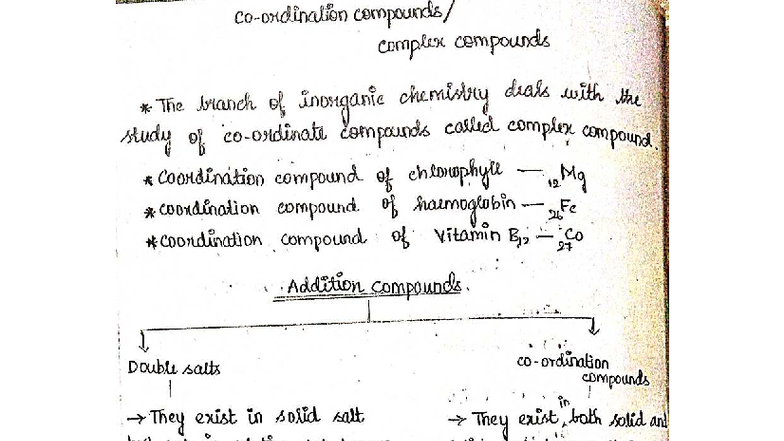 co-ordination compounds/
complex compounds
* The branch of inorganic chemistry deals with the
study of co-ordinate compounds called complex compound.
* Coordination compound of chlorophyll — ₁₂Mg
* coordination compound of haemoglobin — ₂₆Fe
* coordination compound of Vitamin B₁₂ — ₂₇Co
Addition compounds.
Double salts
co-ordination
compounds
→ They exist in solid salt
→ They exist in both solid and